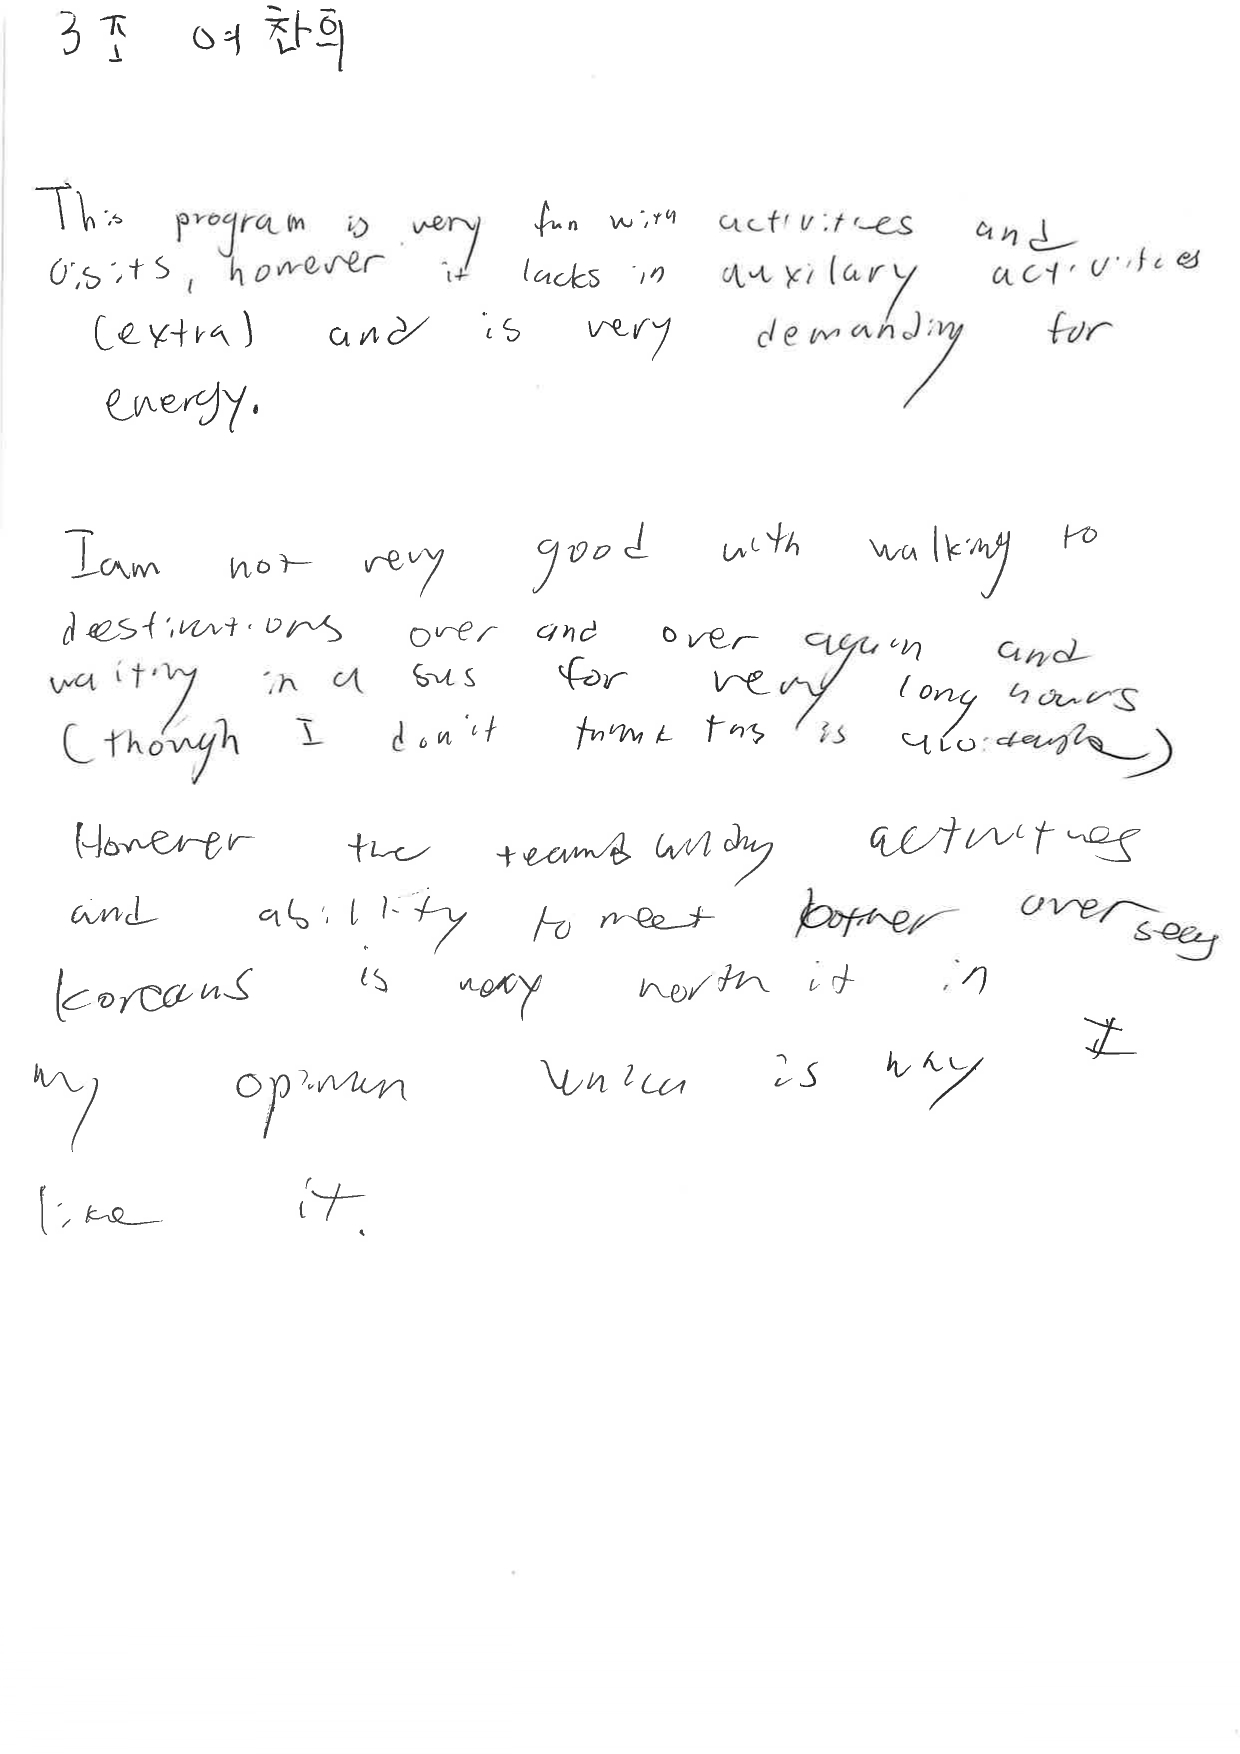 3조 여찬희
This program is very fun with activities and
visits, however it lacks in auxilary activities
(extra) and is very demanding for
energy.
I am not very good with walking to
destinations over and over again and
waiting in a bus for very long hours
(though I don't think this is avoidable)
However the team building activities
and ability to meet other overseas
Koreans is very worth it in
my opinion which is why I
like it.